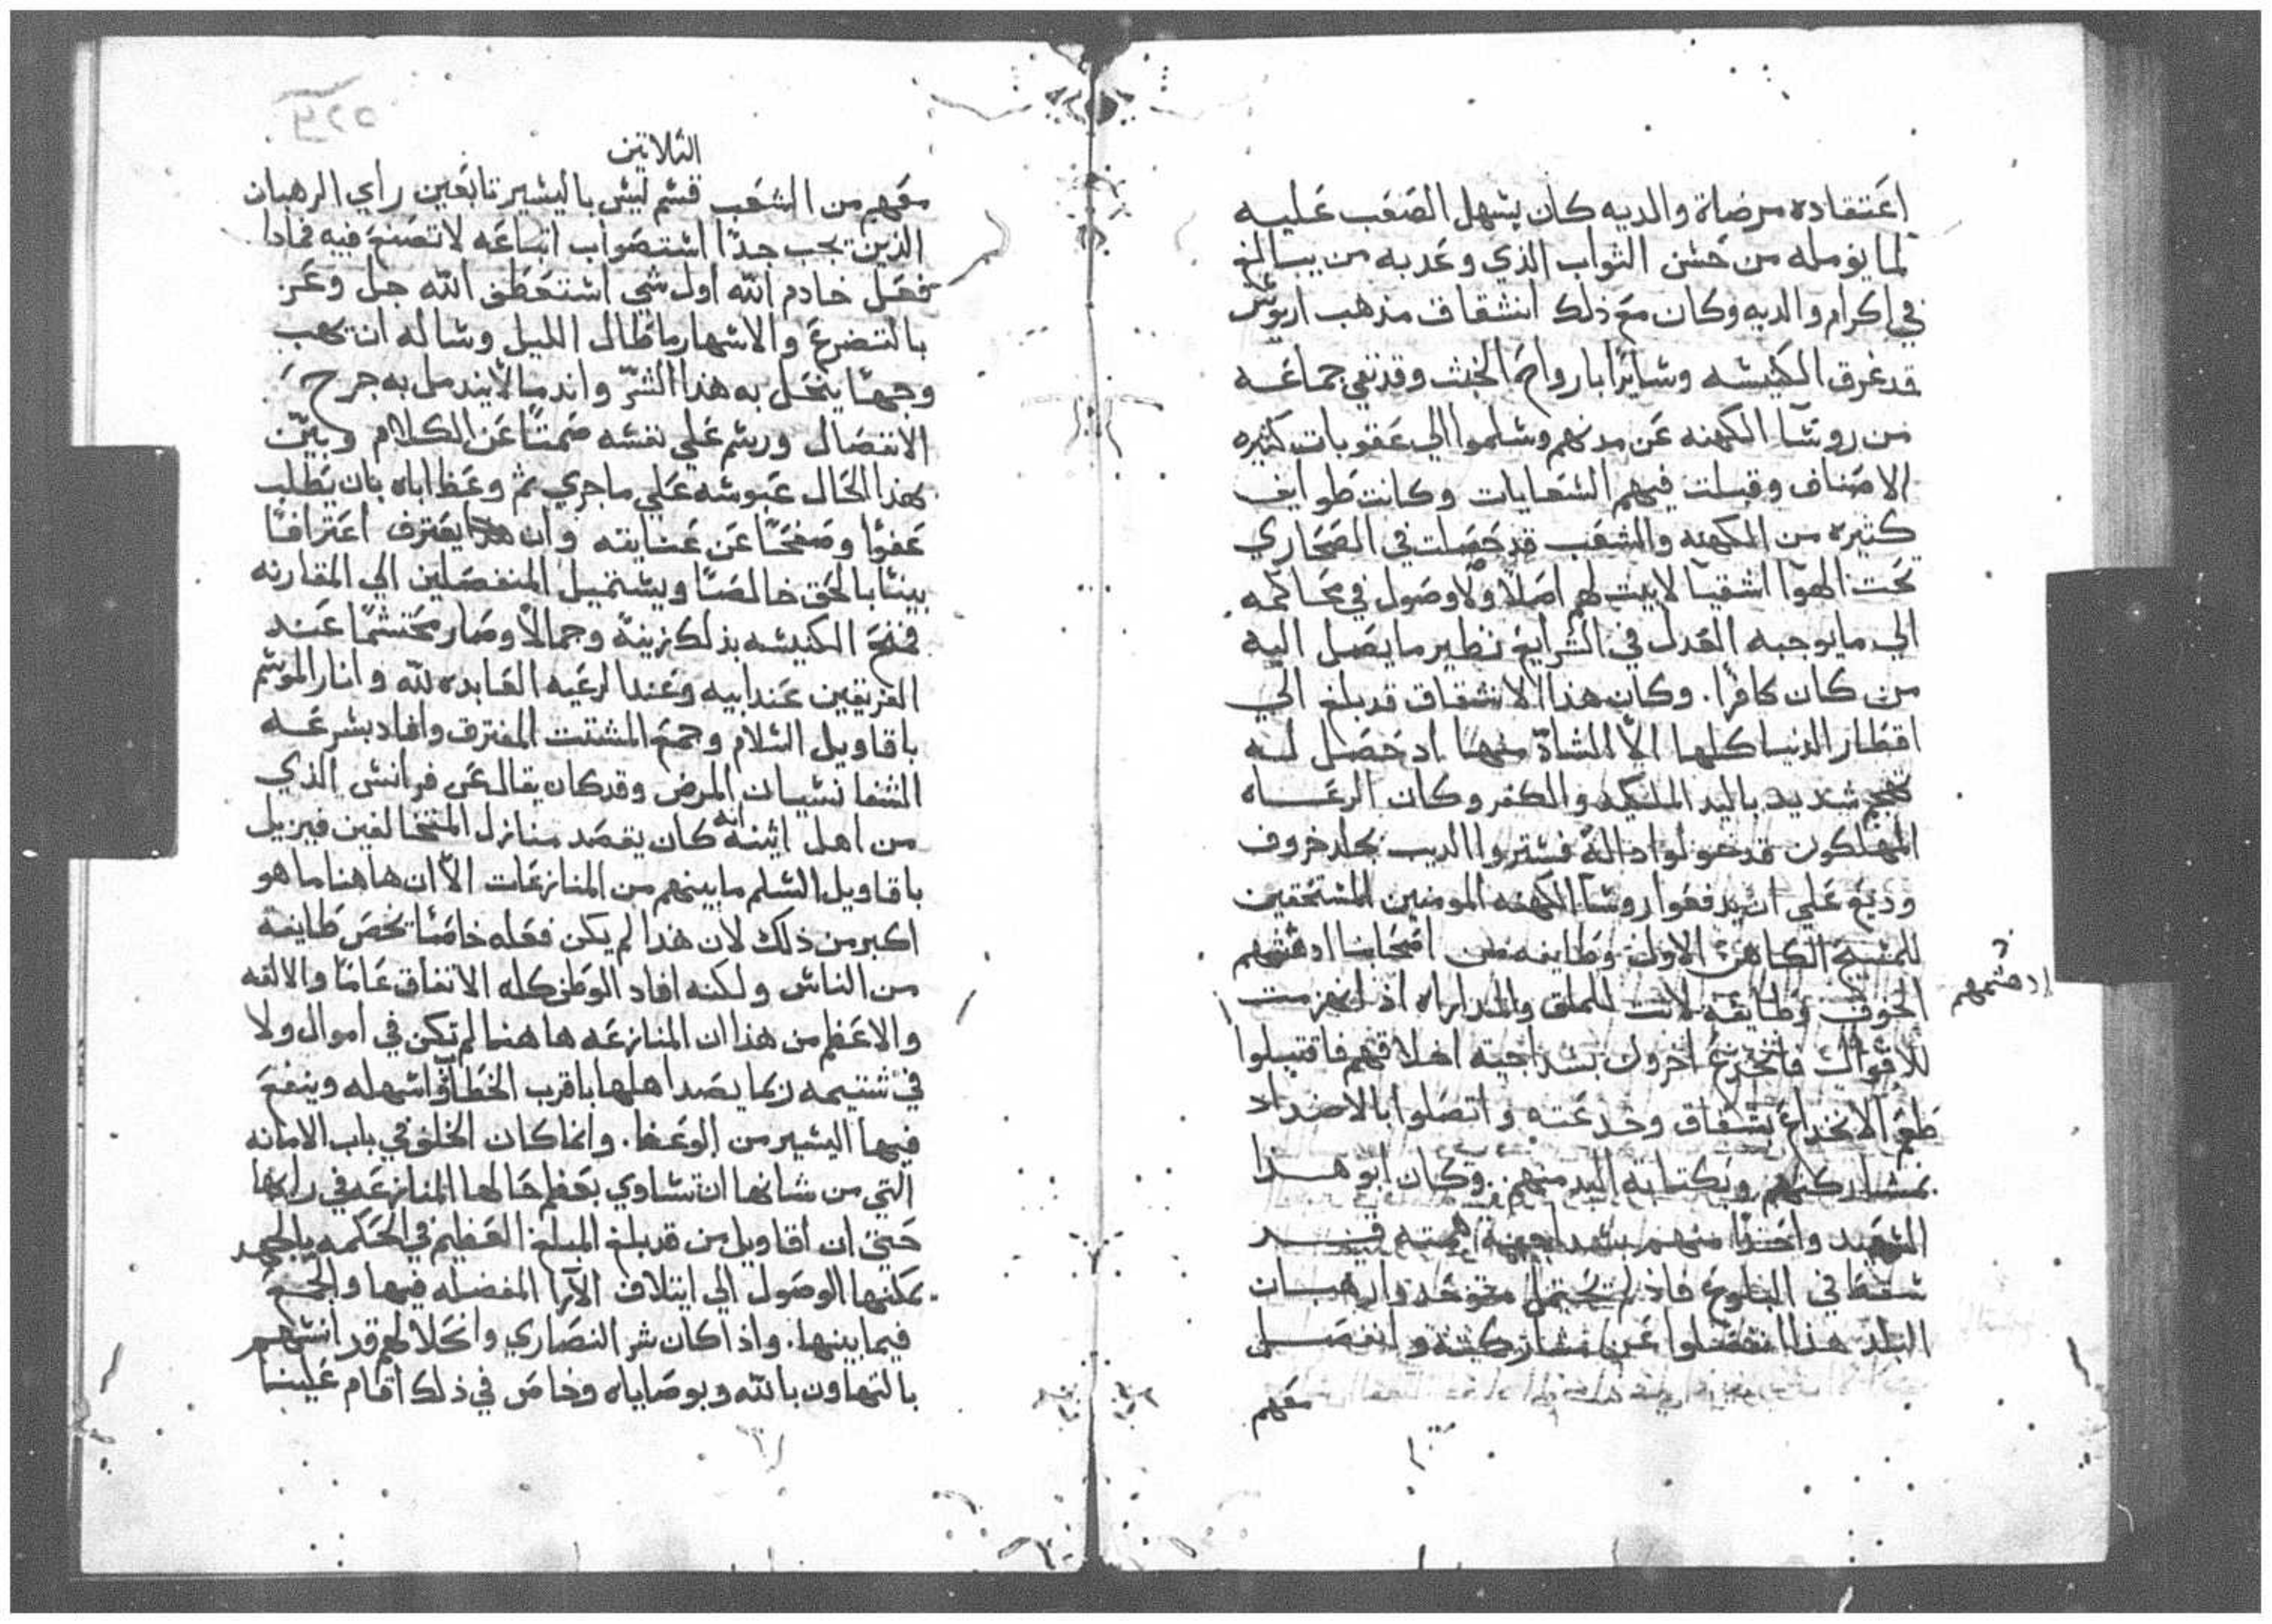 اعتقاده مرضاة والديه كان يسهل الصعب عليه
لما يومله من حسن الثواب الذي وعد به من يبالغ
في اكرام والديه وكان مع ذلك انشقاق مذهب اريوس
قد غرق الكنيسه وسايرا بارواح الخبث وقد نفي جماعه
من روسا الكهنه عن مدنهم وسلموا الي عقوبات كثيره
الاصناف وقبلت فيهم السعايات وكانت طوايف
كثيره من الكهنه والشعب قد حصلت في الصحاري
تحت الهوا اشقيا لا بيت لهم اصلا ولا وصول في محاكمه
الي ما يوجبه العدل في الشرايع نظير ما يصل اليه
من كان كافرا. وكان هذا الانشقاق قد بلغ الي
اقطار الدنيا كلها الا الشاذ منها اد حصل له
شديد باليد الملكيه والكفر وكان الرعاه
المهلكون قد خولوا دالة فستروا الديب بجلد خروف
وديع علي ان يدفعوا روسا الكهنه المومنين المستحقين
للمسيح الكاهن الاول وطايفه من اصحابنا ادهشهم
ادهشهم
الخوف وطايفه لانت للملق والمداراه اذ انهزمت
للاقوال فانخدع اخرون بسداجة اخلاقهم فاقتبلوا
طعم الانخداع بشقاق وخدعته واتصلوا بالاضداد
بمشاركتهم وبكتابة اليد منهم. وكان ابو هذا
السعيد واحدا منهم بسداجة همته قد
سقط في البلوع فاذ لم يحتمل متوحدوا رهبان
البلد هذا انفصلوا عن مشاركته وانفصل
معهم
الثلاثين
معهم من الشعب قسم ليس باليسير تابعين راي الرهبان
الذين يجب جدا استصواب اتباعه لا تصنع فيه فماذا
فعل خادم الله اول شي استعطف الله جل وعز
بالتضرع والاسهار ما طال الليل وساله ان يهب
وجها ينحل به هذا الشر واندمالا يندمل به جرح
الانفصال ورسم علي نفسه صمتا عن الكلام وبين
بهذا الحال عبوسه علي ما جري ثم وعظ اباه بان يطلب
عفوا وصفحا عن عنايته وان يعترف اعترافا
بينا بالحق خالصا ويستميل المنفصلين الي المقارنه
فمنح الكنيسه بذلك زينة وجمالا وصار محتشما عند
الفريقين عند ابيه وعند الرعيه العابده لله وانار الموسم
باقاويل السلام وجمع المشتت المفترق وافاد بسرعه
الشفا نسيان المرض وقد كان يقال عن فرانس الذي
من اهل اثينه انه كان يقصد منازل المتخالفين فيزيل
باقاويل السلم ما بينهم من المنازعات الا ان هاهنا ما هو
اكبر من ذلك لان هذا لم يكن فعله خاصا يخص طايفه
من الناس ولكنه افاد الوطن كله الاتفاق عاما والالفه
والاعظم من هذا ان المنازعه هاهنا لم تكن في اموال ولا
في شتيمه ربما يصد اهلها باقرب الخطا واسهله وينفع
فيها اليسير من الوعظ. وانما كان الخلف في باب الامانه
التي من شانها ان تساوي بعظم حالها المنازعه في رايها
حتي ان اقاويل من قد بلغ المبلغ العظيم في الحكمه بالجهد
يمكنها الوصول الي ايتلاف الآرا المفضله فيها والجمع
فيما بينها. واذا كان شر النصاري وانحلالهم قد انتهم
بالتهاون بالله وبوصاياه وخاص في ذلك اقام علينا